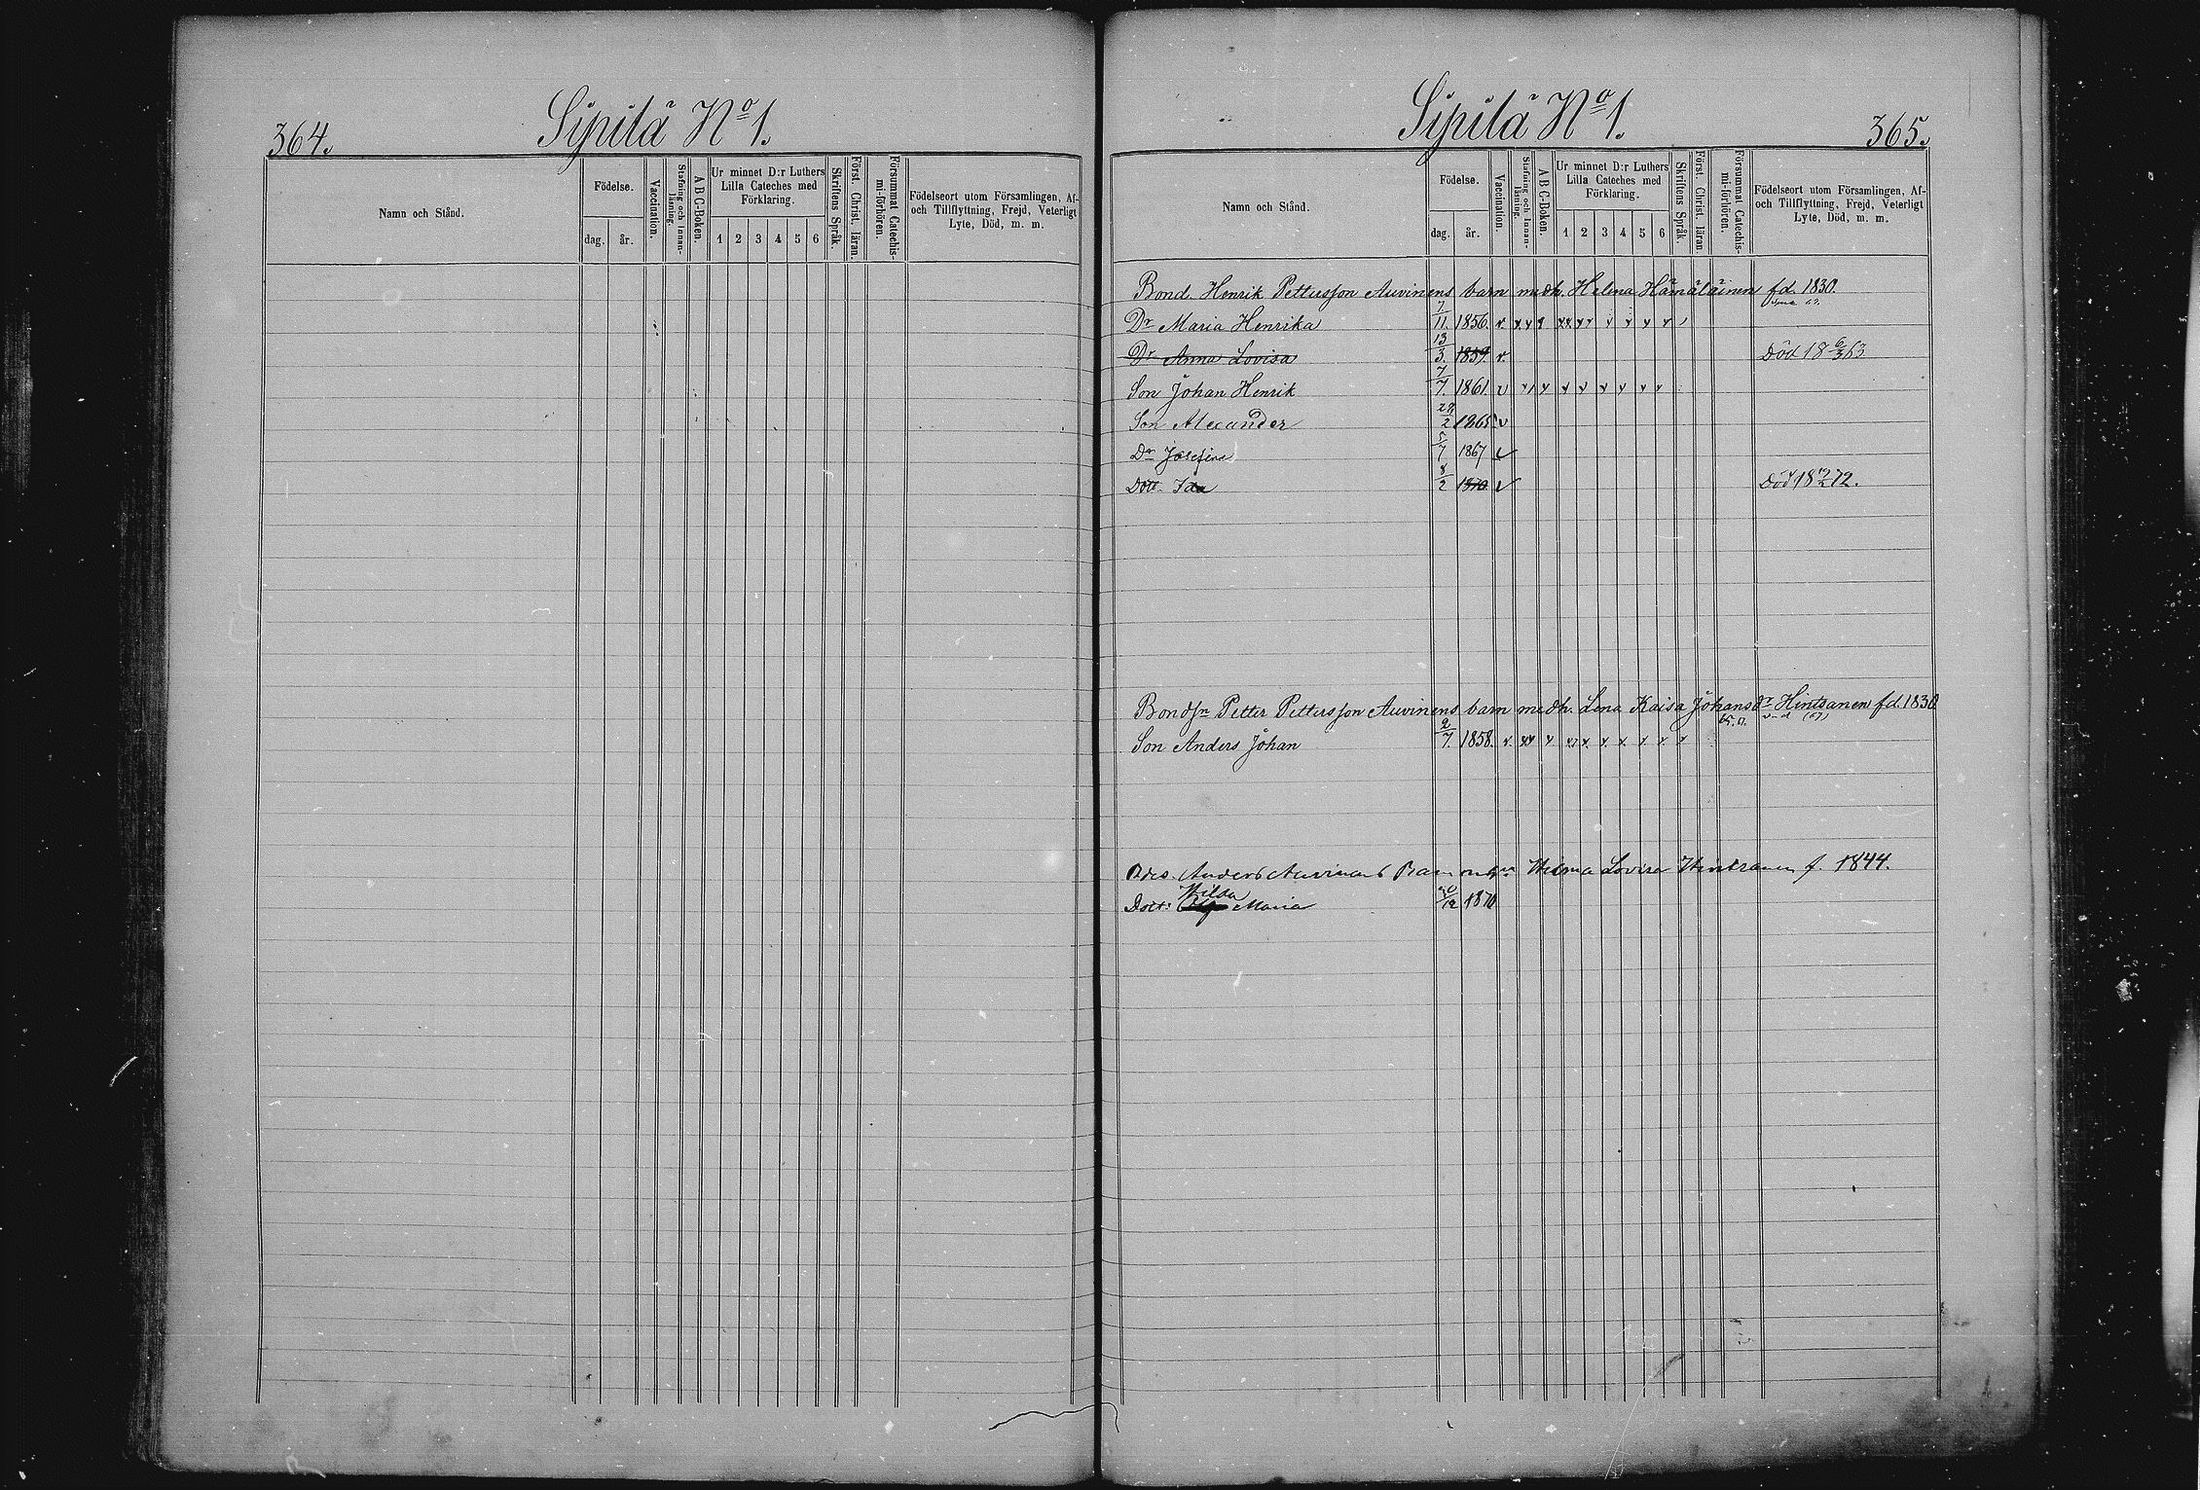 364.
Sipilä No 1.
Namn och Stånd.
Födelse.
dag.
år.
Vaccination.
Stafning och Innan-läsning.
A B C-Boken.
Ur minnet D:r Luthers
Lilla Cateches med
Förklaring.
1 2 3 4 5 6
Skriftens Språk.
Först. Christ. läran.
Försummat Catechis-
mi-förhören.
Födelseort utom Församlingen, Af-
och Tillflyttning, Frejd, Veterligt
Lyte, Död, m. m.
Sipilä No 1.
365.
Namn och Stånd.
Födelse.
dag.
år.
Vaccination.
Stafning och Innan-läsning.
A B C-Boken.
Ur minnet D:r Luthers
Lilla Cateches med
Förklaring.
1 2 3 4 5 6
Skriftens Språk.
Först. Christ. läran
Försummat Catechis-
mi-förhören.
Födelseort utom Församlingen, Af-
och Tillflyttning, Frejd, Veterligt
Lyte, Död, m. m.
Bond. Henrik Pettersson Auvinens barn medh. Helena Hämäläinen fd. 1830.
Dr Maria Henrika 7/11. 1856.
Dr Anna Lovisa 13/3. 1859. Död 18 6/3 63
Son Johan Henrik 7/7. 1861.
Son Alexander 28/2 1865
Dr Josefina 5/7 1867
Dott. Ida 8/2 1870 Död 18 72.
Bondsn Petter Pettersson Auvinens barn medh. Lena Kaisa Johansdr Hintsanen fd. 1830
Son Anders Johan 2/7. 1858.
Anders Auvinens Barn Wilma Lovisa Hintsanen f. 1844.
Hilda
Dott: Maria 20/12 1870